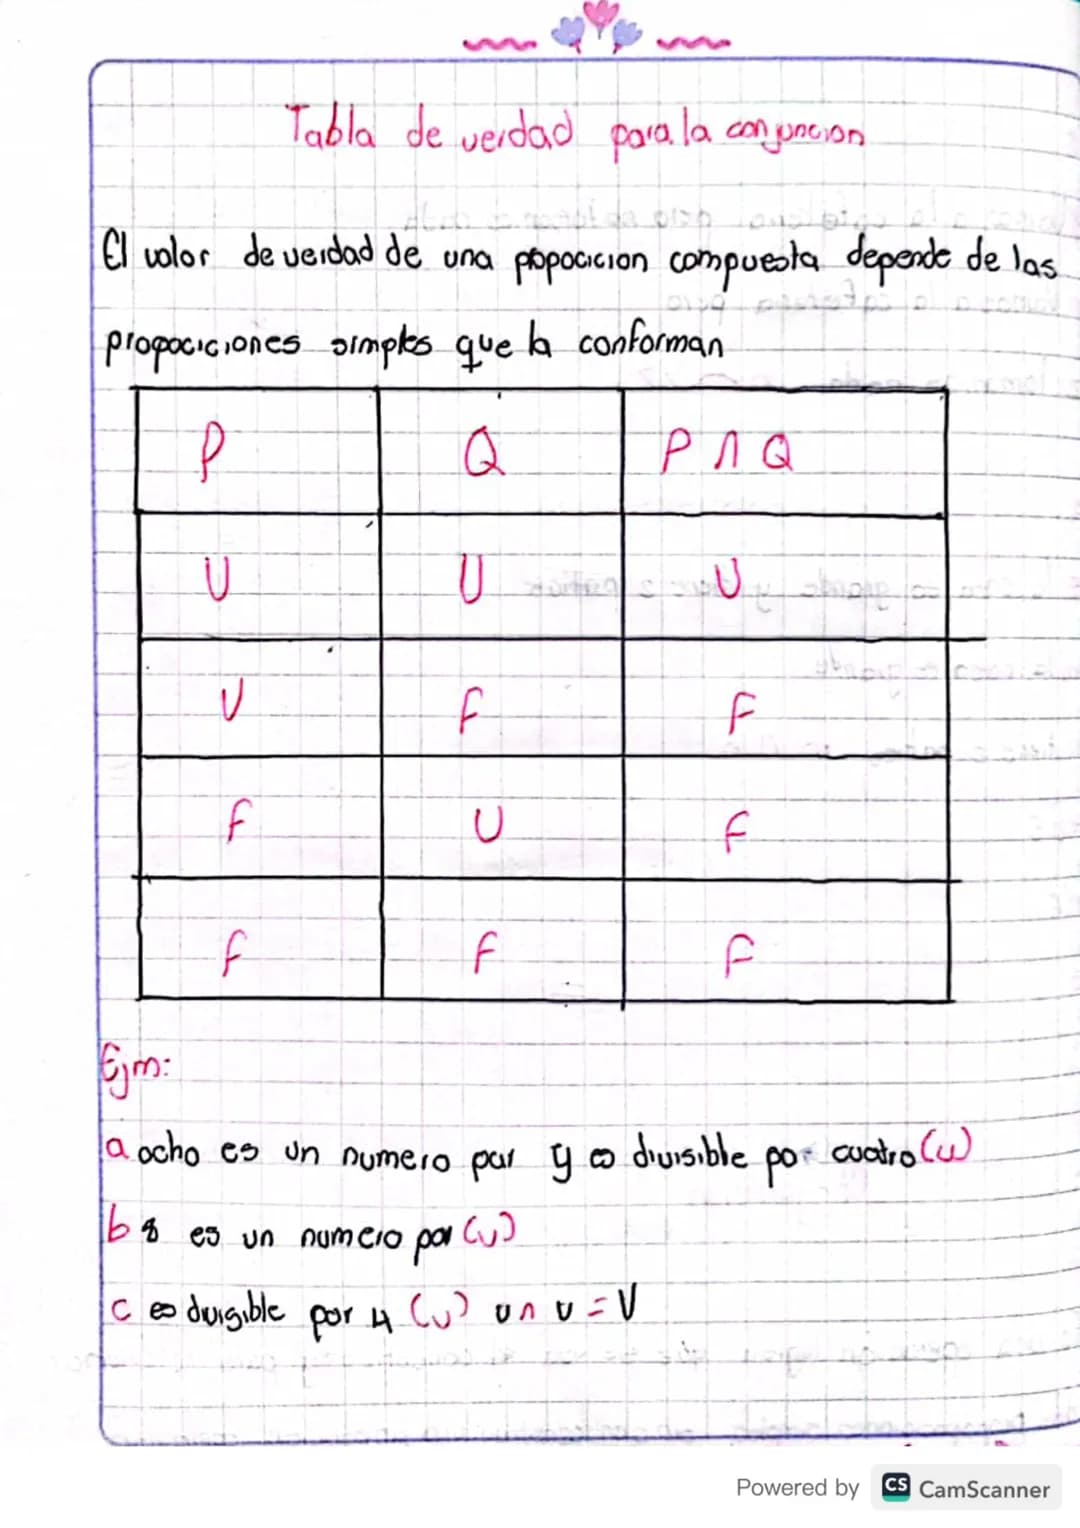 Tabla de verdad para la conjuncion
El valor de verdad de una propocicion compuesta depende de las
propociciones simples que la conforman
P Q P ∧ Q
V V V
V F F
F V F
F F F
Ejm:
a ocho es un numero par y es divisible por cuatro (v)
b 8 es un numero par (v)
c es divisible por 4 (v) v ∧ v = V
Powered by CS CamScanner